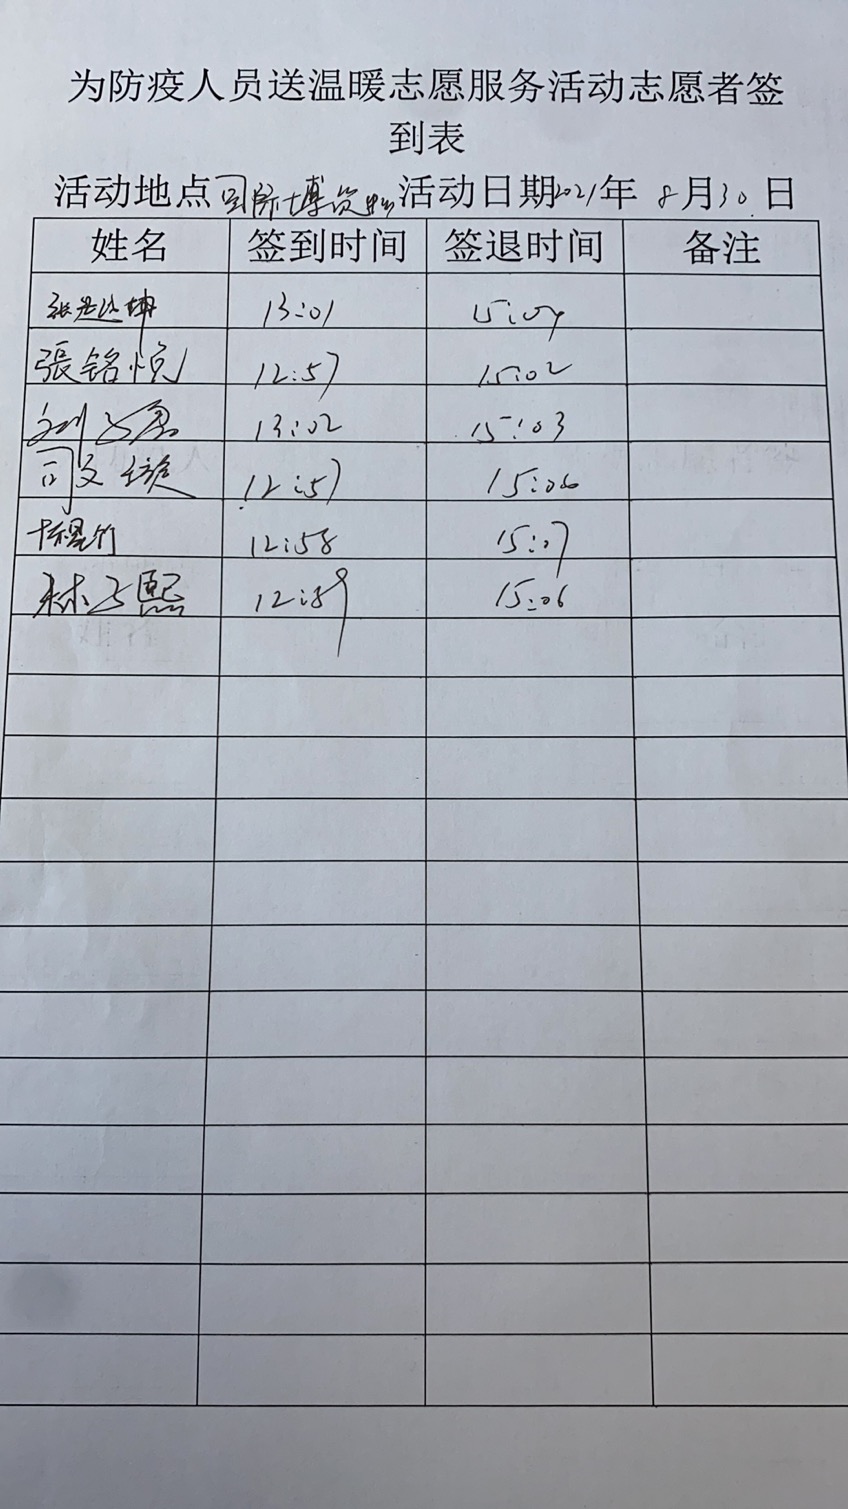 为防疫人员送温暖志愿服务活动志愿者签
到表
活动地点 国际博览 活动日期2021年 8月30日
姓名 签到时间 签退时间 备注
13:01 15:04
張铭悦 12:57 15:02
刘 13:02 15:03
司文 12:57 15:06
12:58 15:07
林子熙 12:59 15:06